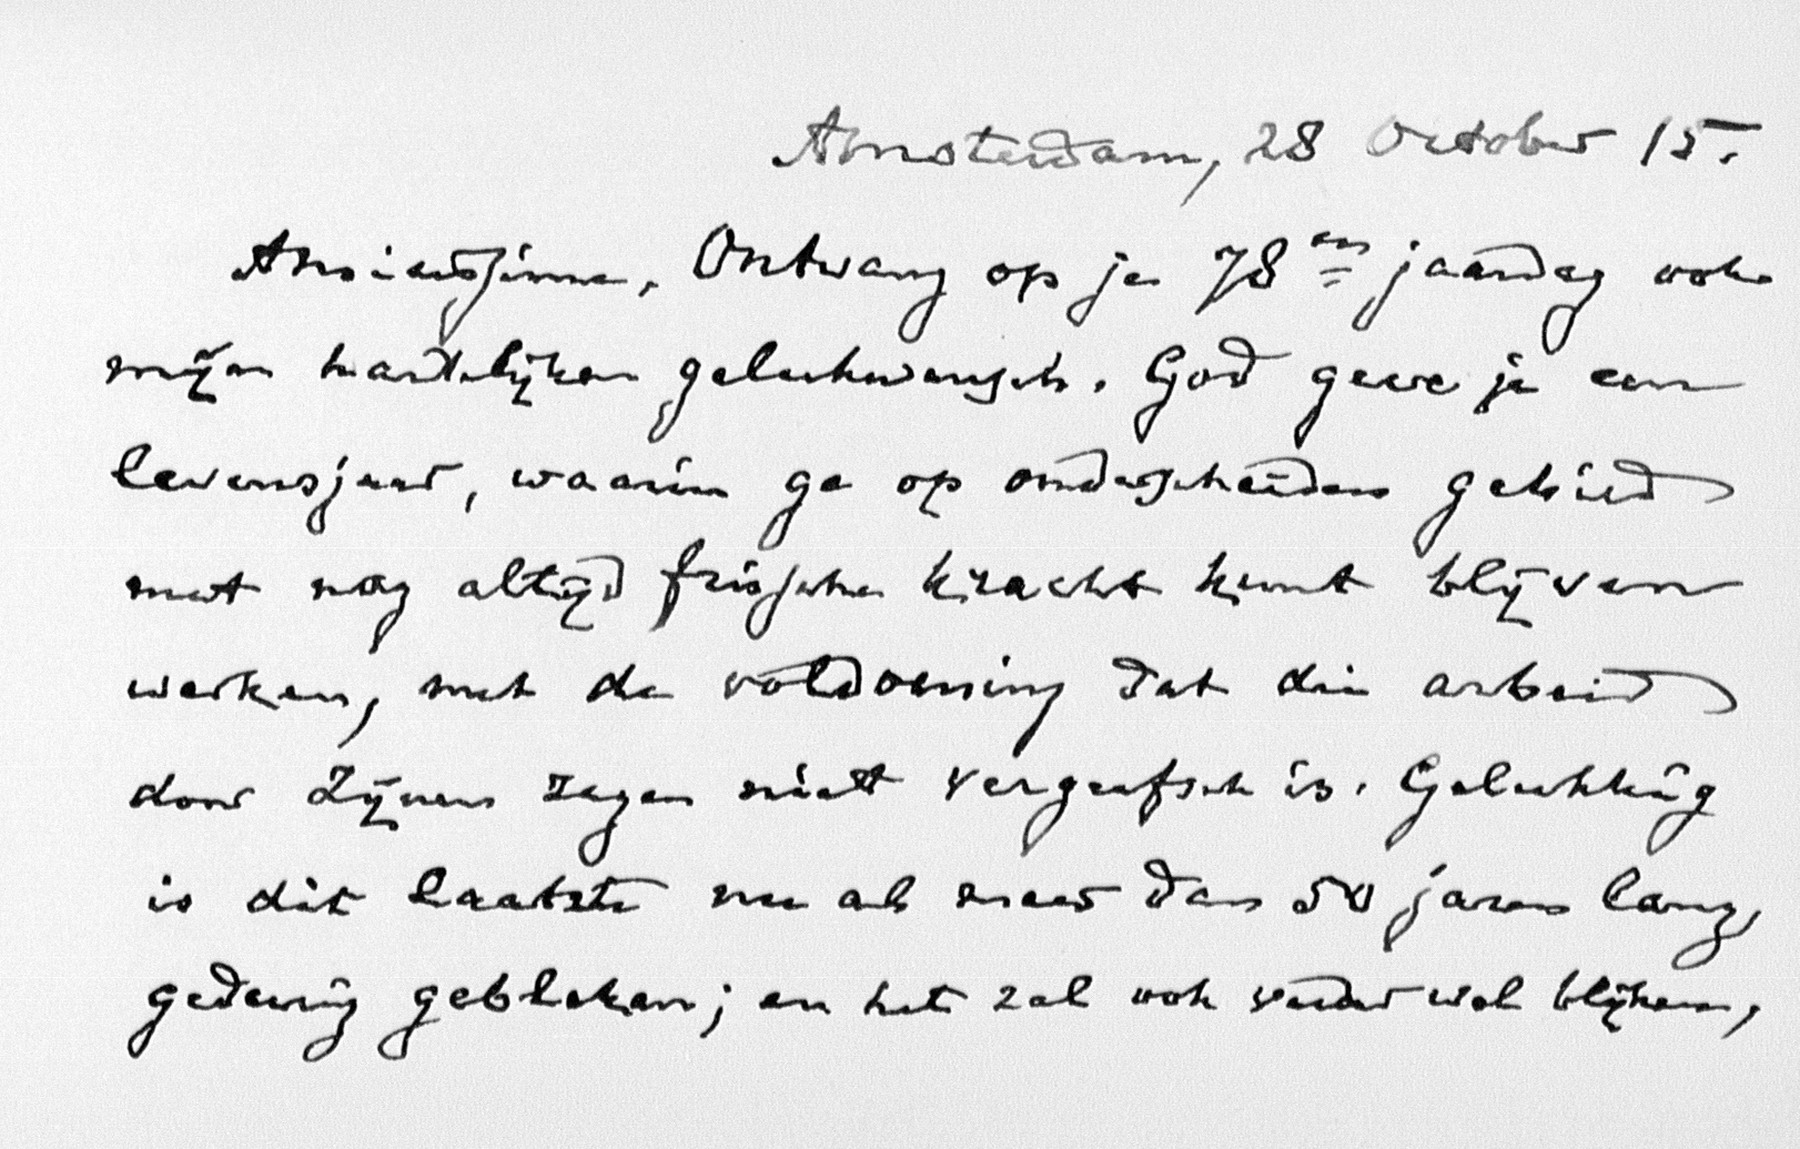 Amsterdam, 28 October 15.
Amicissime, Ontvang op je 78en jaardag ook
mijn hartelijken gelukwensch. God geve je een
levensjaar, waarin ge op onderscheiden gebied
met nog altijd frissche kracht kunt blijven
werken, met de voldoening dat die arbeid
door Zijnen zegen niet vergeefsch is. Gelukkig
is dit laatste nu al meer dan 50 jaren lang,
gedurig gebleken; en het zal ook verder wel blijken,